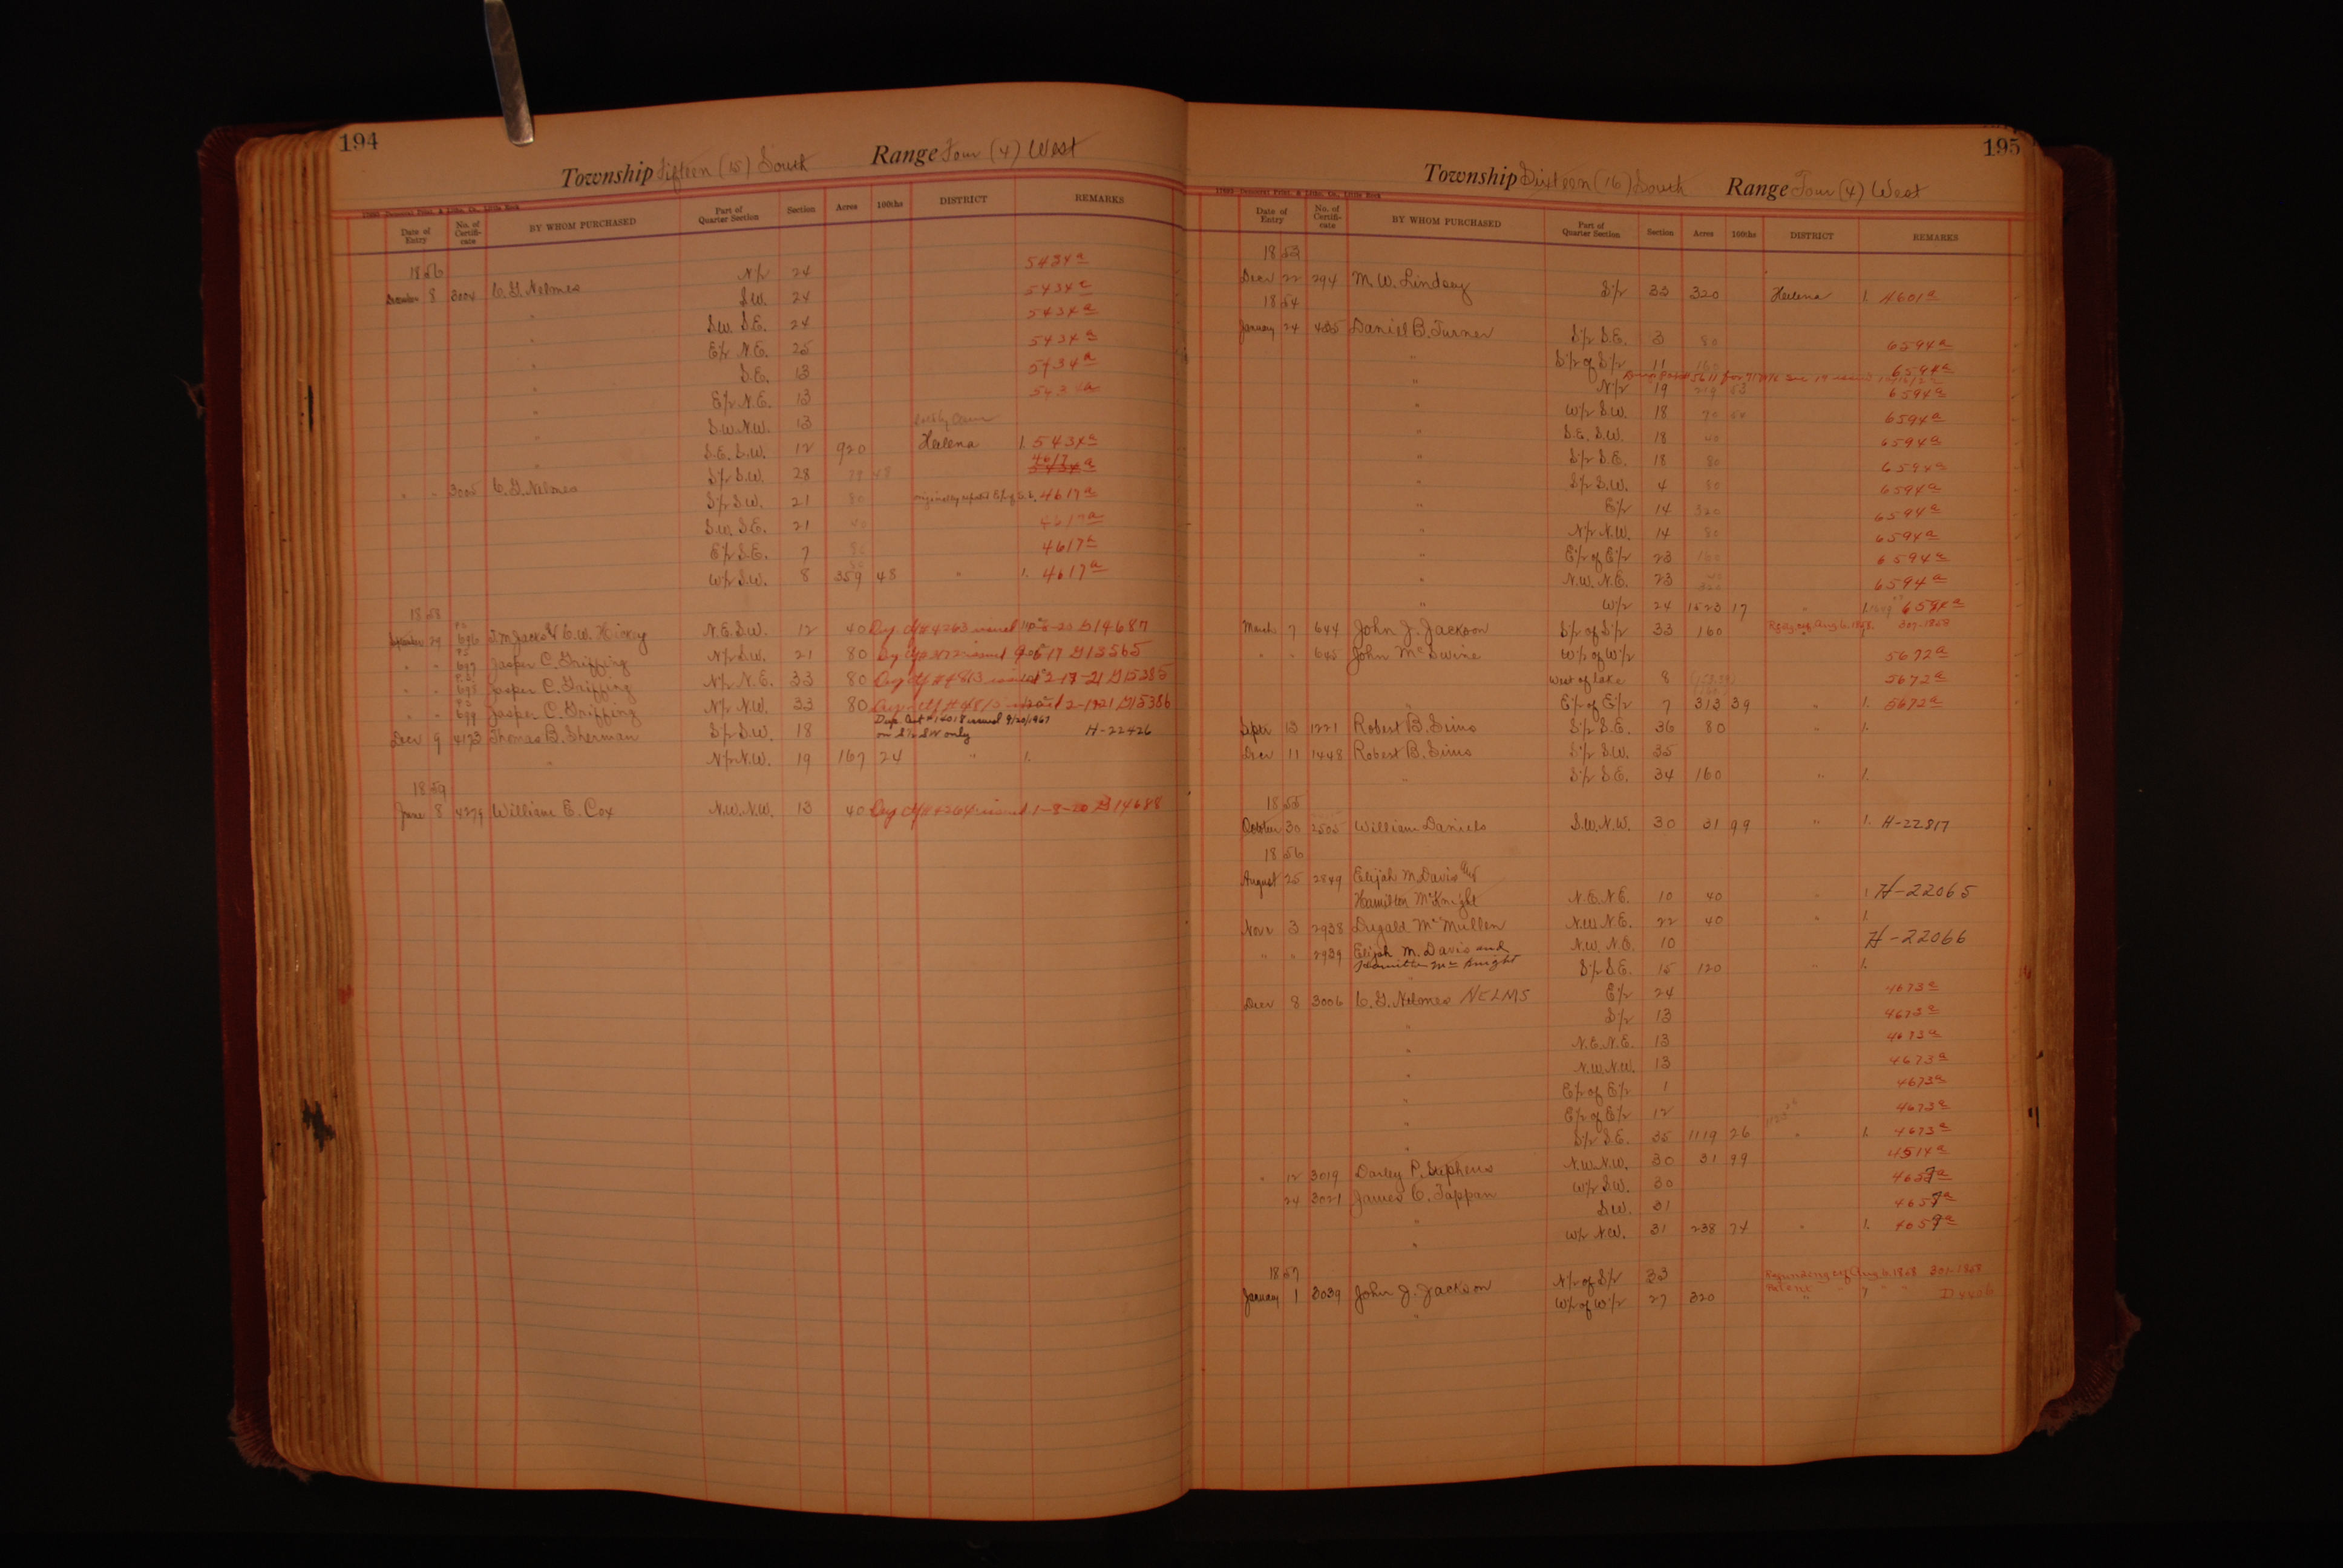 194
Township Fifteen (15) South Range Four (4) West
Date of Entry No. of Certifi-cate BY WHOM PURCHASED Part of Quarter Section Section Acres 100ths DISTRICT REMARKS
1856 N½ 24 5434a
December 8 3004 C. G. Nelmes S.W. 24 5434a
" S.W. S.E. 24 5434a
" E½ N.E. 25 5434a
" S.E. 13 5434a
" E½ N.E. 13
" S.W. N.W. 13
" S.E. S.W. 12 920 Helena 1. 5434a
" S½ S.W. 28 79 48 4617a
" " 3005 C. G. Nelmes S½ S.W. 21 80 4617a
S.W. S.E. 21 40 4617a
E½ S.E. 7 80 4617a
W½ S.W. 8 359 48 " 1. 4617a
1858
September 29 696 & C. W. Hickey N.E. S.W. 12 40 issued G14687
" " 697 Jasper C. Griffing N½ S.W. 21 80 issued G13565
" " 698 Jasper C. Griffing N½ N.E. 33 80 #4813 issued 2-17-21 G15385
" " 699 Jasper C. Griffing N½ N.W. 33 80 G15386
Dup. Cert #14018 issued 9/20/1967
Decr 9 4173 Thomas B. Sherman S½ S.W. 18 on S½ SW only H-22426
" N½ N.W. 19 167 24 " 1.
1859
June 8 4279 William E. Cox N.W. N.W. 13 40 #4264 issued 1-8-20 G14688
195
Township Sixteen (16) South Range Four (4) West
Date of Entry No. of Certifi-cate BY WHOM PURCHASED Part of Quarter Section Section Acres 100ths DISTRICT REMARKS
1853
Decr 22 294 M. W. Lindsey S½ 33 320 Helena 1. 4601a
1854
January 24 435 Daniel B. Turner S½ S.E. 3 80 6594a
" S½ of S½ 11 160 6594a
" N½ 19 53 6594a
W½ S.W. 18 6594a
" S.E. S.W. 18 40 6594a
" S½ S.E. 18 80 6594a
" S½ S.W. 4 80 6594a
" E½ 14 320 6594a
" N½ N.W. 14 80 6594a
" E½ of E½ 23 160 6594a
" N.W. N.E. 23 40 6594a
" W½ 24 1523 17 " 6594a
March 7 644 John J. Jackson S½ of S½ 33 160 Aug 6. 1868. 307-1868
" " 645 John McSwine W½ of W½ 5672a
West of Lake 8 5672a
E½ of E½ 7 313 39 " 1. 5672a
Septr 13 1221 Robert B. Sims S½ S.E. 36 80 " 1.
Decr 11 1448 Robert B. Sims S½ S.W. 35
" S½ S.E. 34 160 " 1.
1855
October 30 2505 William Daniels S.W. N.W. 30 31 99 " 1. H-22817
1856
August 25 2849 Elijah M. Davis and
Hamilton McKnight N.E. N.E. 10 40 " 1 H-22065
Novr 3 2938 Dugald McMullen N.W. N.E. 22 40 " 1.
" " 2939 Elijah M. Davis and N.W. N.E. 10 H-22066
Hamilton McKnight S½ S.E. 15 120 " 1.
Decr 8 3006 C. G. Nelmes NELMS E½ 24 4673a
" S½ 13 4673a
" N.E. N.E. 13 4673a
" N.W. N.W. 13 4673a
" E½ of E½ 1 4673a
" E½ of E½ 12 4673a
" S½ S.E. 35 1119 26 " 1. 4673a
" 12 3019 Darley P. Stephens N.W. N.W. 30 31 99 4514a
24 3021 James C. Tappan W½ S.W. 30 4657a
" S.W. 31 4657a
" W½ N.W. 31 238 74 " 1. 4657a
1857
January 1 3039 John J. Jackson N½ of S½ 33 Aug 6 1868 301-1868
" W½ of W½ 27 320